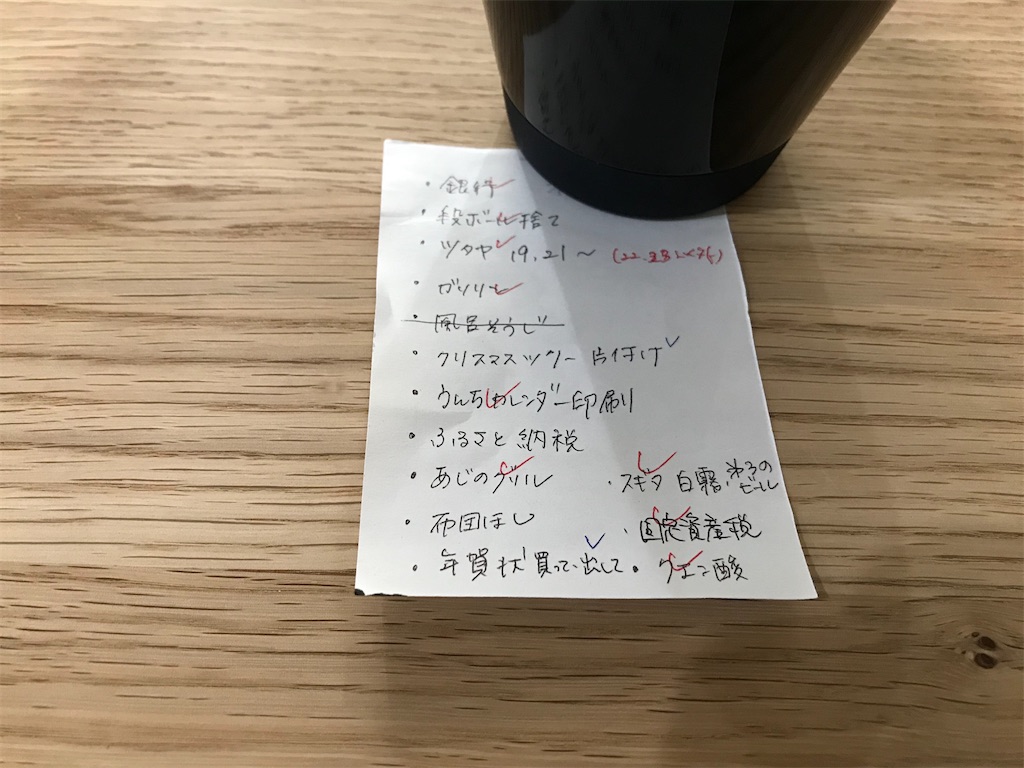 ・銀行
・段ボール捨て
・ツタヤ 19,21〜
・ガソリン
・風呂そうじ
・クリスマスツリー片付け
・うんちカレンダー印刷
・ふるさと納税
・あじのグリル ・スギタ 白霧、のビール
・布団ほし ・固定資産税
・年賀状買って出して ・クエン酸